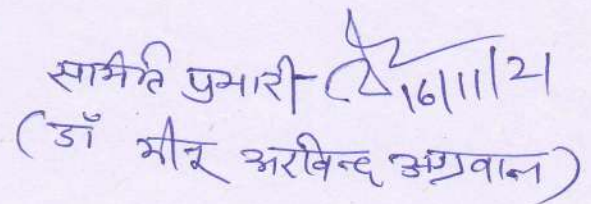 समिति प्रभारी- 16/11/21
(डॉ मीर अरविन्द अग्रवाल)